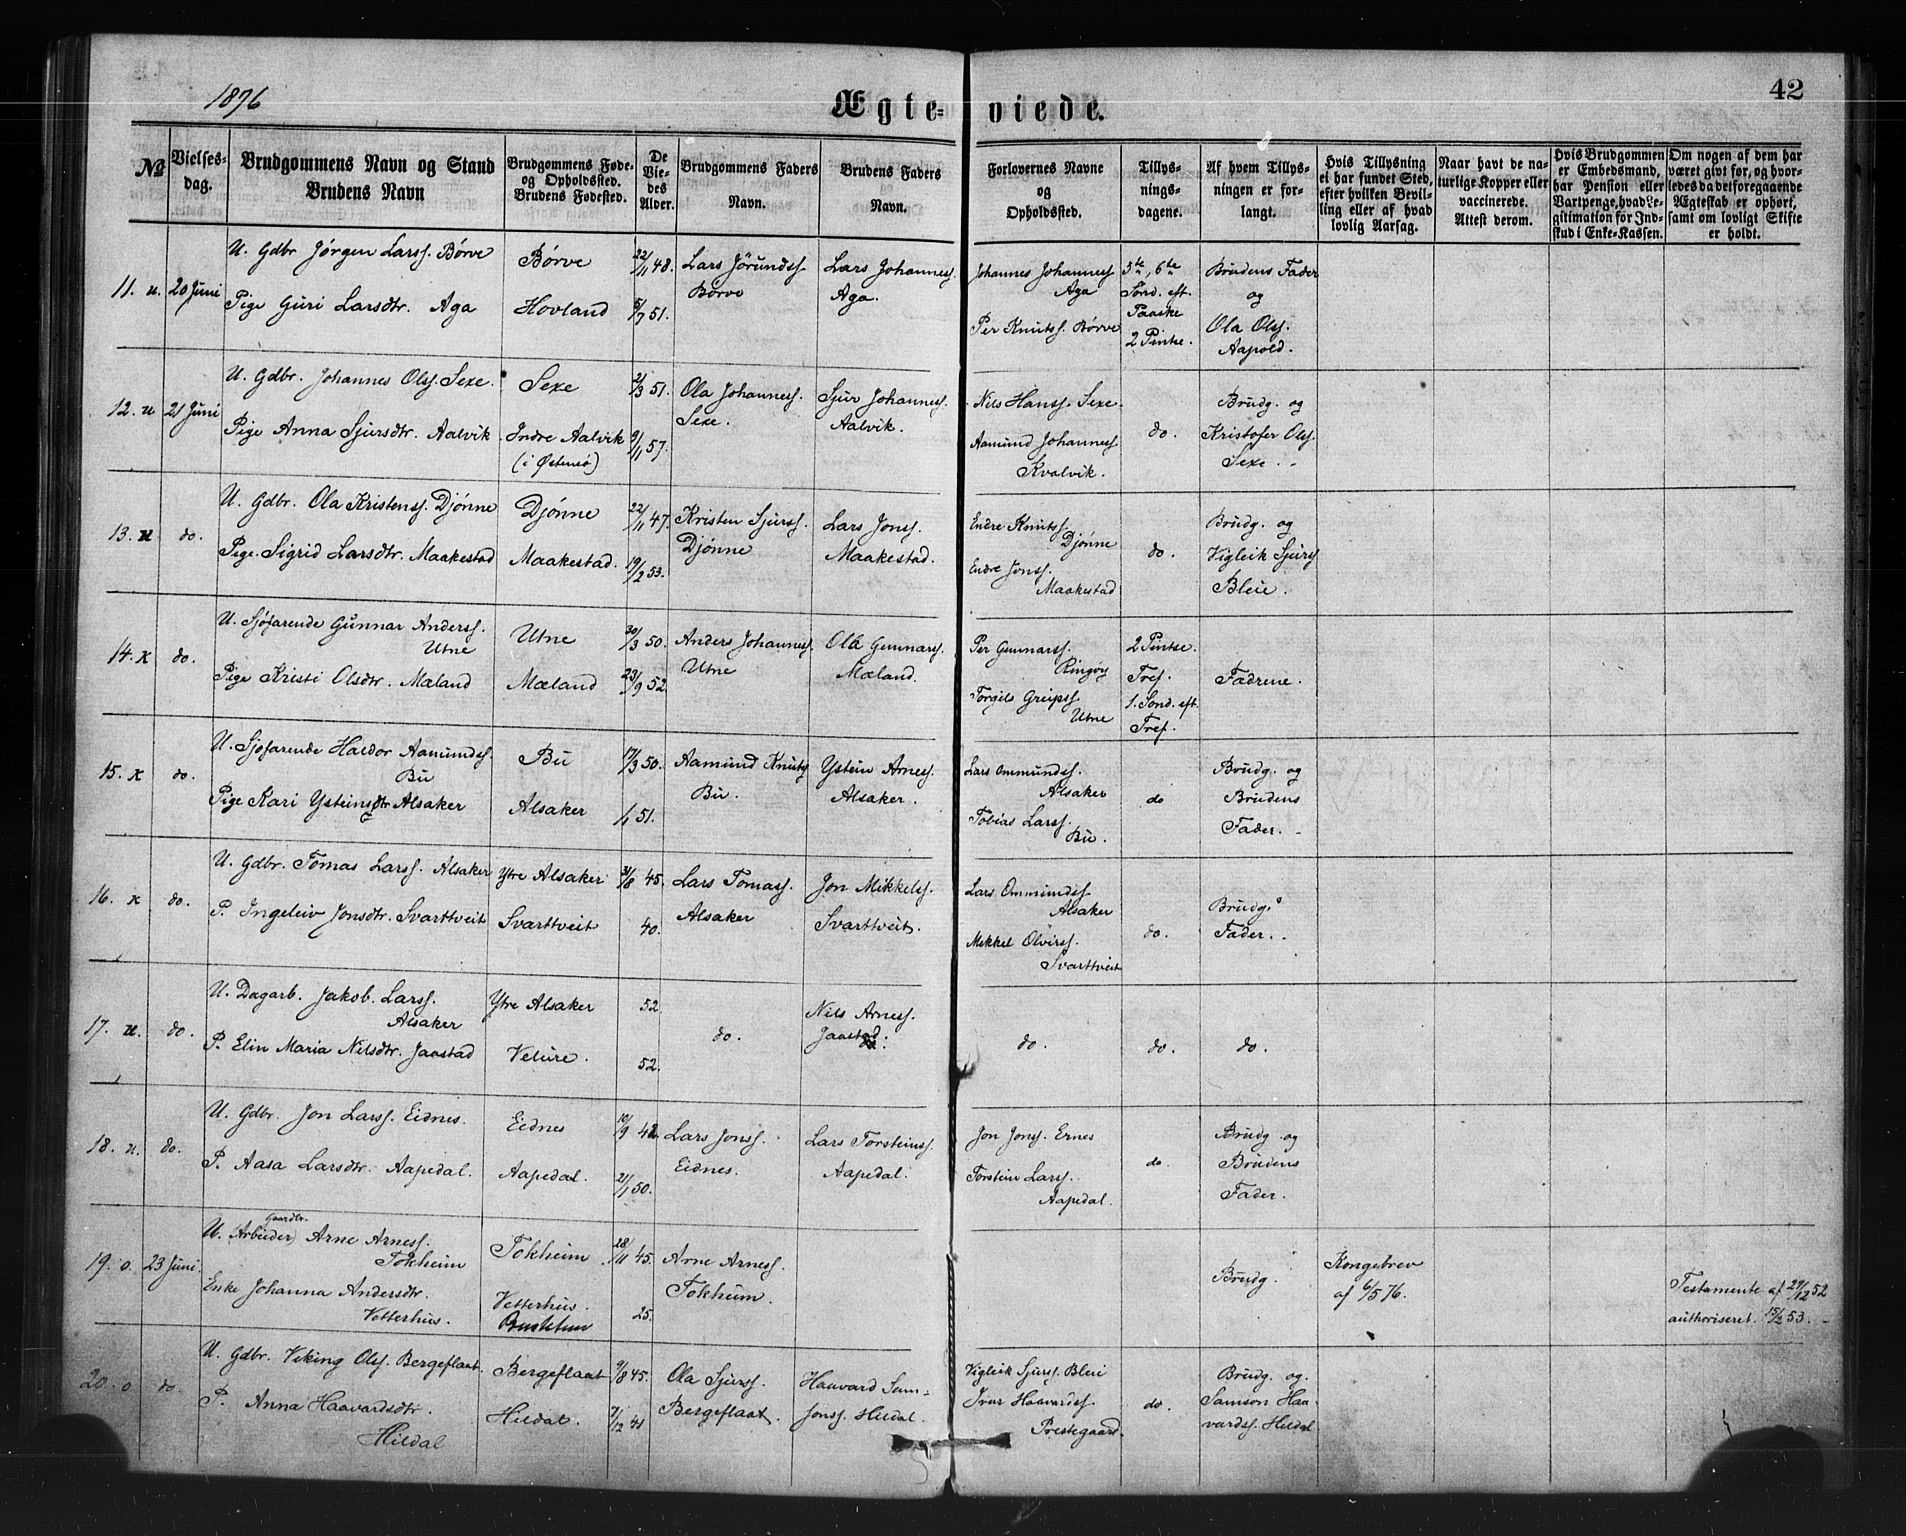 1876
Ægte-
viede.
42
№
Vielses-
dag.
Brudgommens Navn og Stand
Brudens Navn
Brudgommens Føde-
og Opholdssted.
Brudens Fødested.
De
Vie-
des
Alder.
Brudgommens Faders
Navn.
Brudens Faders
Navn.
Forlovernes Navne
og
Opholdssted.
Tillys-
nings-
dagene.
Af hvem Tillys-
ningen er for-
langt.
Hvis Tillysning
ei har fundet Sted,
efter hvilken Bevil-
ling eller af hvad
lovlig Aarsag.
Naar havt de na-
turlige Kopper eller
vaccinerede.
Attest derom.
Hvis Brudgommen
er Embedsmand,
har Pension eller
Vartpenge, hvad Le-
gitimation for Ind-
skud i Enke-Kassen.
Om nogen af dem har
været givt før, og hvor-
ledes da det foregaaende
Ægteskab er ophørt,
samt om lovligt Skifte
er holdt.
11. u. 20 Juni
U. Gdbr Jørgen Larss. Børve
Pige Guri Larsdtr. Aga
Børve
Hovland
22/11 48.
5/7 51.
Lars Jørundss.
Børve
Lars Johanness.
Aga.
Johannes Johanness.
Aga
Per Knutss. Børve
5te, 6te
Sønd. eft.
Paaske
2 Pintse.
Brudens Fader
og
Ola Olss.
Aapold.
12. u 21 Juni
U. Gdbr. Johannes Olss. Sexe.
Pige Anna Sjursdtr. Aalvik
Sexe
Indre Aalvik
(i Østensø)
2/3 51.
9/11 57.
Ola Johanness.
Sexe.
Sjur Johanness.
Aalvik.
Nils Hanss. Sexe.
Aamund Johanness.
Kvalvik.
do.
Brudg. og
Kristofer Olss.
Sexe.
13. u do.
U. Gdbr. Ola Kristenss. Djønne
Pige. Sigrid Larsdtr. Maakestad
Djønne
Maakestad.
22/11 47.
19/2 53.
Kristen Sjurss.
Djønne
Lars Jonss.
Maakestad.
Endre Knutss.
Djønne
Endre Jonss.
Maakestad
do.
Brudg. og
Vigleik Sjurss
Bleie.
14. x do.
U. Sjøfarende Gunnar Anderss.
Utne
Pige Kristi Olsdtr. Mæland
Utne
Mæland
30/3 50.
23/9 52.
Anders Johanness.
Utne
Ola Gunnarss.
Mæland.
Per Gunnarss.
Ringøy
Torgils Greipss
Utne
2 Pintse.
Tref.
1. Sønd. eft.
Tref.
Fædrene.
15. x do.
U. Sjøfarende Haldor Aamundss.
Bu
Pige Kari Ysteinsdtr Alsaker
Bu
Alsaker
17/3 50.
1/1 51.
Aamund Knutss
Bu.
Ystein Arness.
Alsaker.
Lars Ommundss.
Alsaker
Tobias Larss.
Bu.
do
Brudg. og
Brudens
Fader.
16. x do.
U. Gdbr. Tomas Larss. Alsaker
P. Ingeleiv Jonsdtr. Svarttveit
Ytre Alsaker
Svarttveit
31/8 45.
40.
Lars Tomass.
Alsaker
Jon Mikkelss.
Svarttveit.
Lars Ommundss.
Alsaker
Mikkel Olvirss.
Svarttveit
do.
Brudg.s
Fader.
17. u. do.
U. Dagarb. Jakob. Larss.
Alsaker
P. Elin Maria Nilsdtr. Jaastad
Ytre Alsaker
Velure.
52.
52.
do.
Nils Arness.
Jaastad.
do.
do.
do.
18. u. do.
U. Gdbr. Jon Larss. Eidnes.
P. Aasa Larsdtr. Aapedal.
Eidnes
Aapedal.
10/9 42.
21/1 50.
Lars Jonss.
Eidnes.
Lars Torsteinss.
Aapedal.
Jon Jonss. Ernes
Torstein Larss.
Aapedal.
do
Brudg. og
Brudens
Fader.
19. o. 23 Juni.
Gaardbr.
U. (Arbeider) Arne Arness.
Tokheim
Enke Johanna Andersdtr.
Vetterhus.
Tokheim
Vetterhus.
28/11 45.
25.
Arne Arness.
Tokheim.
Brudg.
Kongebrev
af 6/5 76.
Testamente af 29/12 52
authoriseret. 15/2 53.
20. o do.
U. Gdbr. Viking Olss. Bergeflaat.
P. Anna Haavardsdtr.
Hildal
Bergeflaat
Hildal.
9/8 45.
7/12 41
Ola Sjurss.
Bergeflaat.
Haavard Sam-
sonss. Hildal.
Vigleik Sjurss. Bleie
Ivar Haavardss.
Prestegaard.
do.
Brudg. og
Samson Haa-
vardss. Hildal